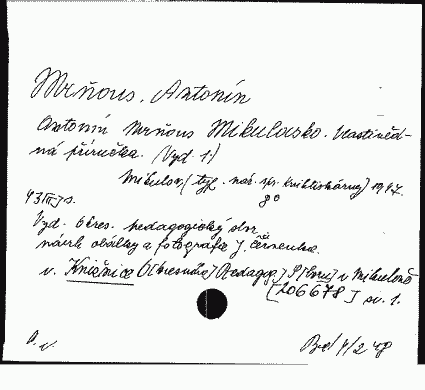 Mrňous, Antonín
Antonín Mrňous Mikulovsko. Vlastivěd-
ná příručka. (Vyd. 1.)
Mikulov, (typ. nár. spr. knihtiskárny) 1947.
8°
43 s.
Vyd. Okres. pedagogický sbor
návrh obálky a fotografie J. Černenka.
v. Knižnice O[kresního] Pedagog.] S[boru] v Mikulově
[206678] sv. 1.
Bd/4/2 48